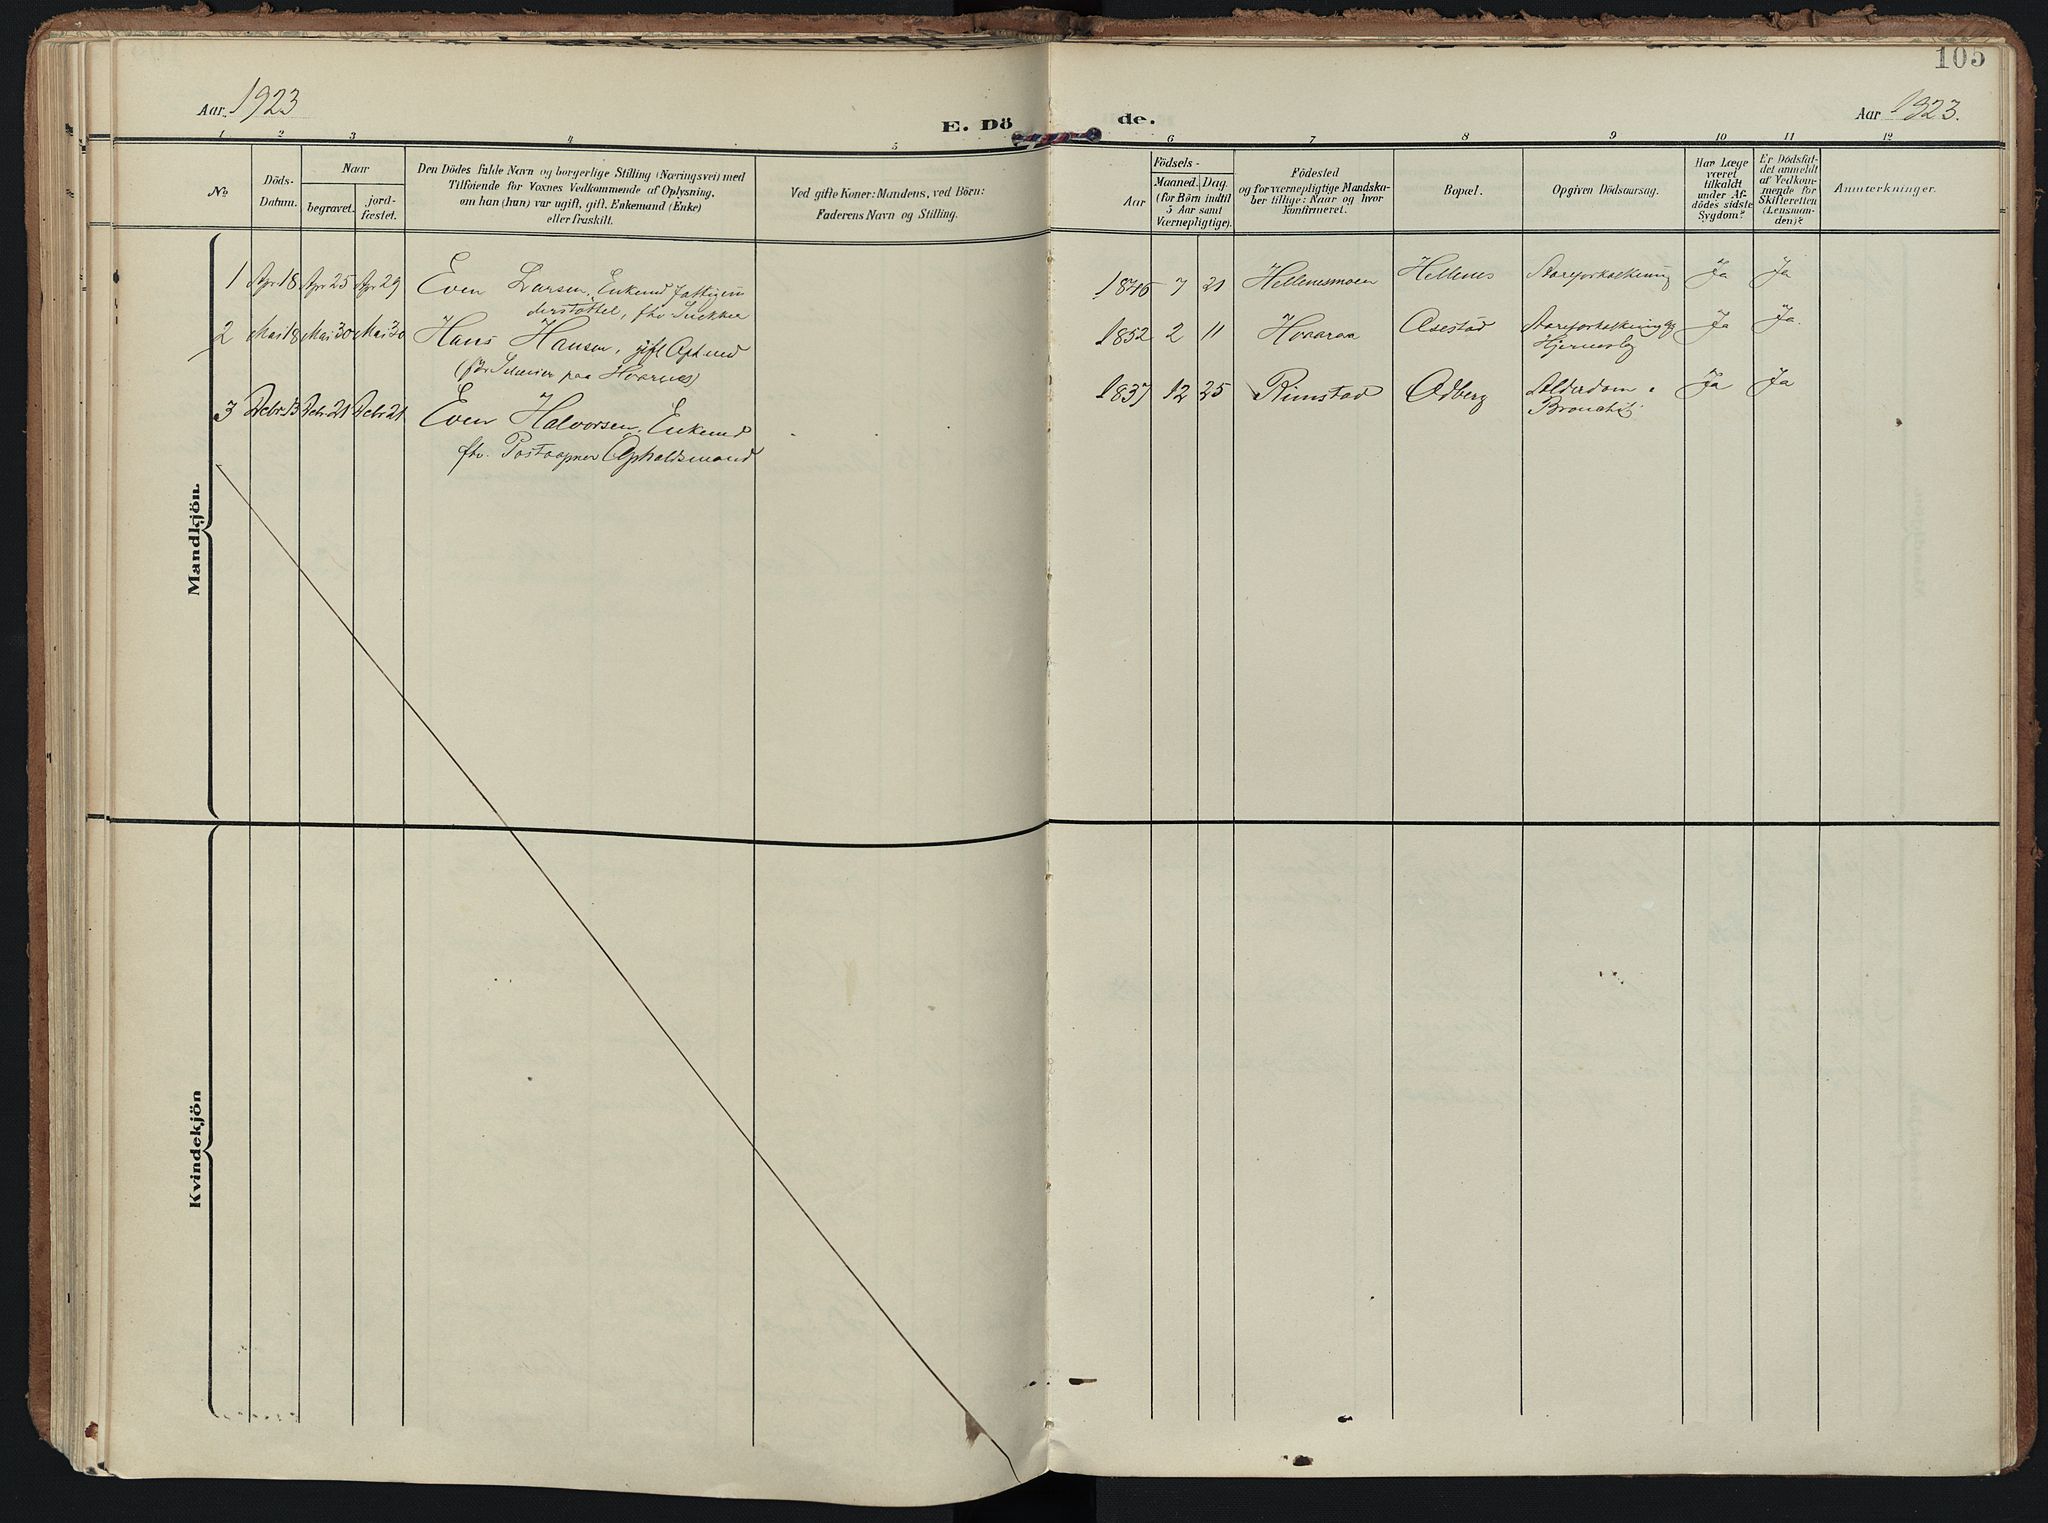 105
Aar 1923
E. Dö
de.
Aar 1923.
1 2 3 4 5 6 7 8 9 10 11 12
No
Döds-
Datum.
Naar
begravet.
jord-
fæstet.
Den Dödes fulde Navn og borgerlige Stilling (Næringsvei) med
Tilföiende for Voxnes Vedkommende af Oplysning,
om han (hun) var ugift, gift, Enkemand (Enke)
eller fraskilt.
Ved gifte Koner: Mandens, ved Börn:
Faderens Navn og Stilling.
Födsels-
Aar
Maaned.
Dag.
(for Börn indtil
5 Aar samt
Værnepligtige).
Födested
og for værnepligtige Mandska-
ber tillige: Naar og hvor
konfirmeret.
Bopæl.
Opgiven Dödsaarsag.
Har Læge
været
tilkaldt
under Af-
dödes sidste
Sygdom?
Er Dödsfal-
det anmeldt
af Vedkom-
mende for
Skifteretten
(Lensman-
den)?
Anmærkninger.
Mandkjön.
1 Apr 18 Apr 25 Apr 29 Even Larsen, Enkemd fattigun 1846 7 21 Hellenesmoen Hellenes Aareforkalkning Ja Ja
derstöttet, fhv.
2 Mai 18 Mai 30 Mai 30 Hans Hansen, gift 1852 2 11 Hovaraa Asestad Aareforkalkning og Ja Ja.
paa
3 Debr 13 Debr 21 Debr 21 Even Halvorsen, Enkemd 1837 12 25 Rimstad Odberg Alderdom Ja Ja
fhv. Postaapner Opholdsmand
Kvindekjön